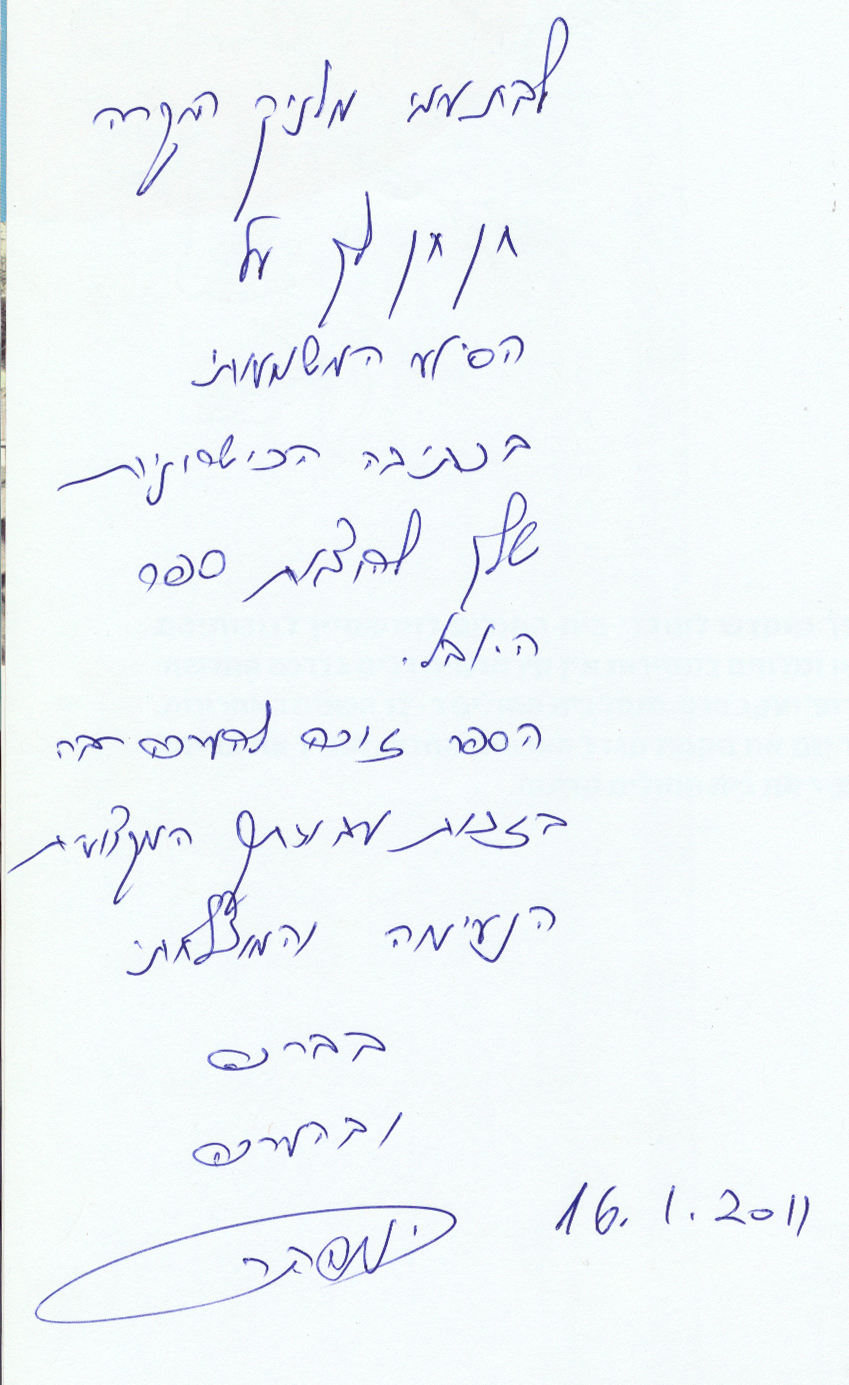 לבת עמי מלניק היקרה
חן חן לך על
הסיוע המשמעותי
בכתיבה הכישרונית
שלך להוצאת ספר
היובל.
הספר זוכה להערכה רבה
בזכות עבודתך המקצועית
הנעימה והמוצלחת
בברכה
ובהערכה
16.1.2011